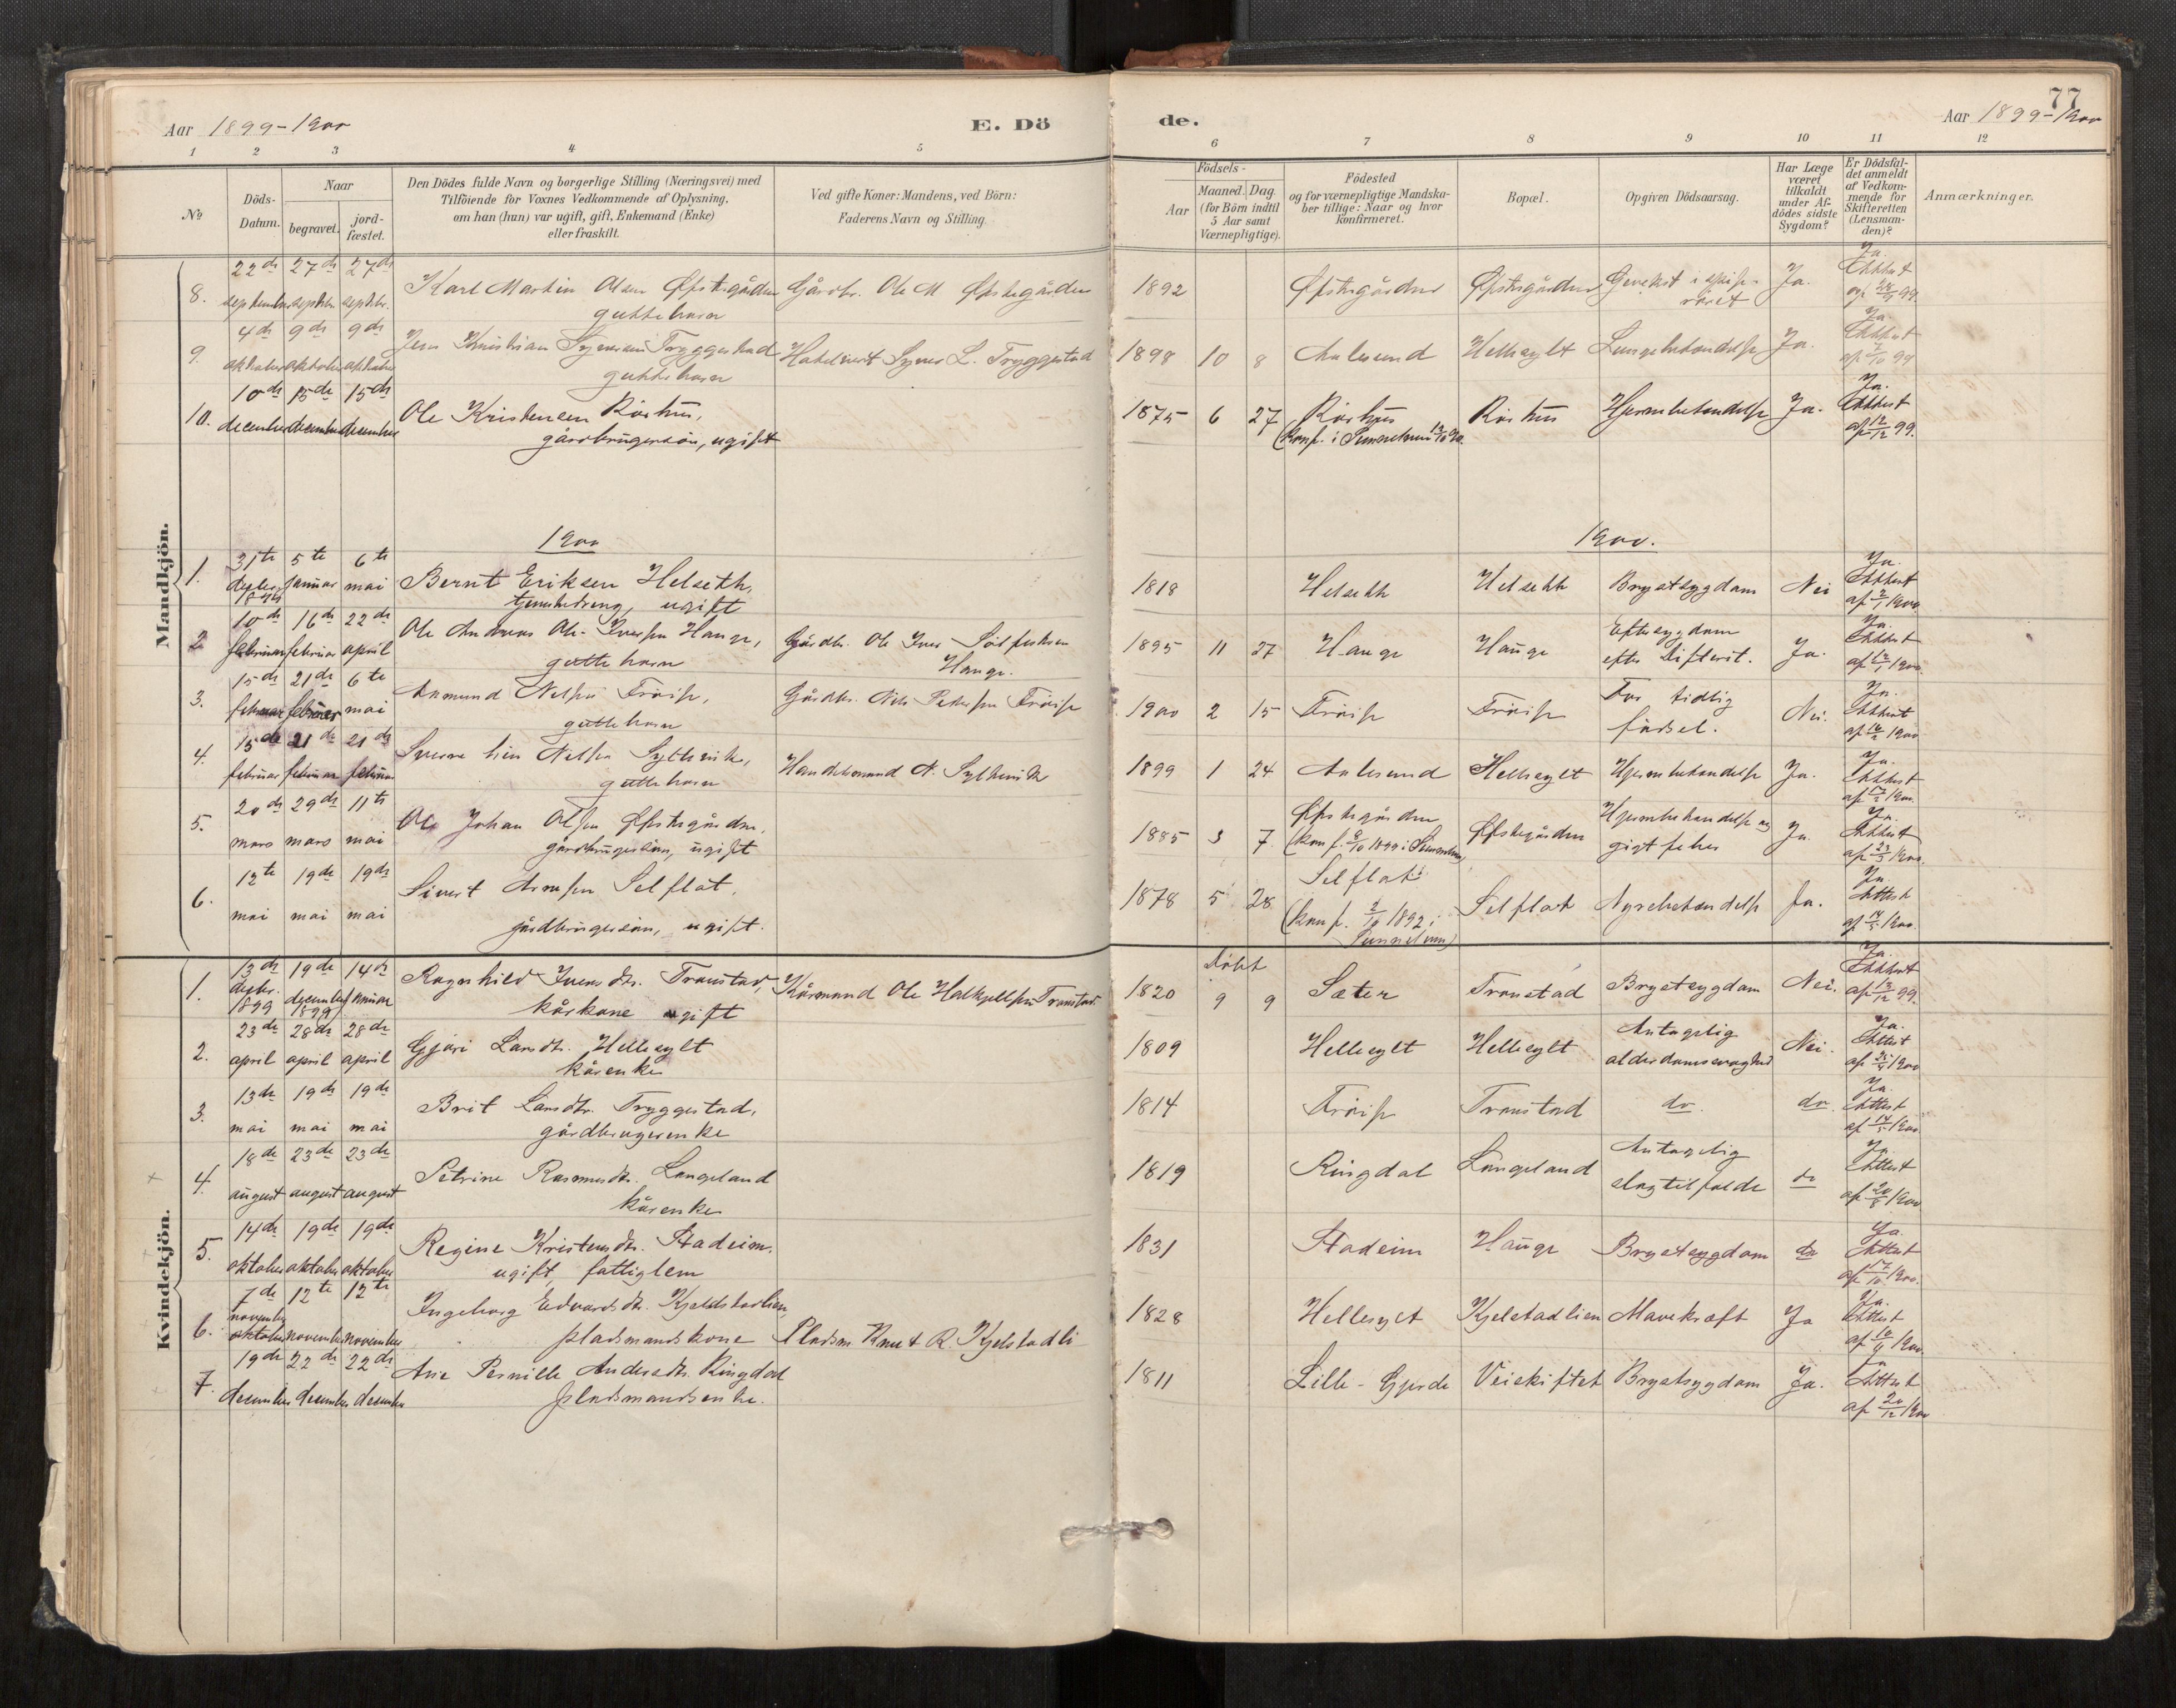 Aar 1899-1900
E. Dö
de.
77
Aar 1899-1900
1 2 3 4 5 6 7 8 9 10 11 12
No
Döds-Datum.
Naar
begravet.
jord-fæstet.
Den Dödes fulde Navn og borgerlige Stilling (Næringsvei) med
Tilföiende for Voxnes Vedkommende af Oplysning,
om han (hun) var ugift, gift, Enkemand (Enke)
eller fraskilt.
Ved gifte Koner: Mandens, ved Börn:
Faderens Navn og Stilling.
Födsels-
Aar
Maaned. Dag.
(for Börn indtil
5 Aar samt
Værnepligtige).
Födested
og for værnepligtige Mandska-
ber tillige: Naar og hvor
konfirmeret.
Bopæl.
Opgiven Dödsaarsag.
Har Læge
været
tilkaldt
under Af-
dödes sidste
Sygdom?
Er Dödsfal-
det anmeldt
af Vedkom-
mende for
Skifteretten
(Lensman-
den)?
Anmærkninger.
Mandkjön.
8. 22de september 27de septbr. 27de septbr. Karl Martin Olsen Øfstegården
guttebarn
Gårdbr. Ole M. Øfstegården 1892 Øfstegården Øfstegården Gevekst i spise-
röret Ja. Ja. Attest af 28/9 99.
9. 4de oktober 9de oktober 9de oktober Jens Kristian Synesen Tryggestad
guttebarn
Hotelvert Synes L. Tryggestad 1898 10 8 Aalesund Hellesylt Lungebetændelse Ja. Ja. Attest af 7/10 99
10. 10de december 15de december 15de december Ole Kristensen Rörhus,
gårdbrugersön, ugift
1875 6 27 Rörhus
(konf. i Sunnelven 12/10 90. Rörhus Hjernebetændelse Ja. Ja. Attest af 12/12 99.
1900
1900.
1. 31te desbr. 1899 5te januar 6te mai Bernt Eriksen Helseth,
tjenestedreng, ugift
1818 Helseth Helseth Brystsygdom Nei Ja. Attest af 2/1 1900.
2 10de februar 16de februar 22de april Ole Andreas Ole-Iversen Hauge,
guttebarn
Gårdbr. Ole Iver Sölfestsen
Hauge.
1895 11 27 Hauge Hauge Eftersygdom
efter Difterit. Ja. Ja. Attest 1900.
3. 15de februar 21de februar 6te mai Anmund Nelsen Fröise,
guttebarn
Gårdbr. Nils Petersen Fröise 1900 2 15 Fröise Fröise For tidlig
födsel. Nei. Ja. Attest af 16/2 1900
4. 15de februar 21de februar 21de februar Sverre Nelsen Sylthevik,
guttebarn
Handelsmand N. Sylthevik 1899 1 24 Aalesund Hellesylt Hjernebetændelse Ja. Ja. Attest af 17/2 1900.
5. 20de mars 29de mars 11te mai Ole Johan Olsen Øfstegården,
gårdbrugersön, ugift
1885 3 7 Øfstegården
(konf. 8/10 1899 i Sunnelven) Øfstegården Hjernebetændelse og
gigtfeber Ja. Ja. Attest af 23/3 1900.
6. 12te mai 19de mai 19de mai Sivert Arnesen Selflot,
gårdbrugersön, ugift.
1878 5 28 Selflot
(konf. 2/10 1892 i
Sunnelven) Selflot Nyrebetændelse Ja. Ja. Attest af 14/5 1900.
Kvindekjön.
1. 13de desbr. 1899 19de december 1899 14de januar Ragnhild Iversdtr. Tronstad,
kårkone gift
Kårmand Ole Halkjelsen Tronstad 1820 döbt 9 9 Sæter Tronstad Brystsygdom Nei. Ja. Attest af 13/12 99.
2. 23de april 28de april 28de april Gjöri Larsdtr. Hellesylt
kårenke
1809 Hellesylt Hellesylt Antagelig
alderdomssvaghed Nei. Ja. Attest 1900
3. 13de mai 19de mai 19de mai Brit Larsdtr. Tryggestad,
gårdbrugerenke
1814 Fröise Tronstad do. do. Ja. Attest af 14/5 1900.
4. 18de august 23de august 23de august Petrine Rasmusdtr. Langeland
kårenke
1819 Ringdal Langeland Antagelig
slagtilfælde do Ja. Attest af 20/8 1900
5. 14de oktober 19de oktober 19de oktober Regine Kristensdtr. Stadeim.
ugift, fattiglem
1831 Stadeim Hauge Brystsygdom do Ja. Attest af 17/10 1900.
6. 7de november oktober 12te november 12te november Ingeborg Edvardsdtr. Kjelstadlien,
pladsmandskone
Pladsm. Knut R. Kjelstadli 1828 Hellesylt Kjelstadlien Mavekræft Ja Ja. Attest af 10/11 1900.
7. 19de december 22de december 22de december Ane Pernille Andersdtr. Ringdal
pladsmandsenke.
1811 Lille-Gjerde Veiskiftet Brystsygdom Ja. Ja Attest af 20/12 1900